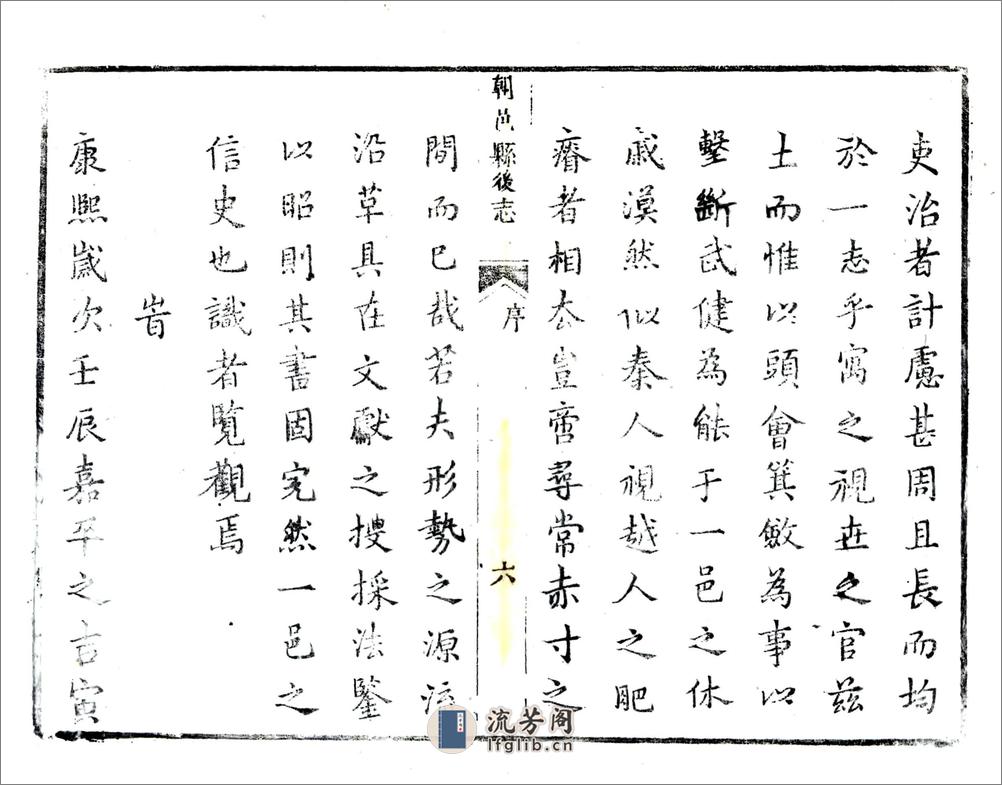 吏治者計慮甚周且長而均
於一志乎寓之視世之官茲
土而惟以頭會箕斂為事以
擊斷武健為能于一邑之休
戚漠然似秦人視越人之肥
瘠者相去豈啻尋常赤寸之
朝邑縣後志
序
六
間而已哉若夫形勢之源流
沿革具在文獻之搜採法鑒
以昭則其書固宛然一邑之
信史也識者覽觀焉
旹
康熙歲次壬辰嘉平之吉寅
流芳阁
lfglib.cn